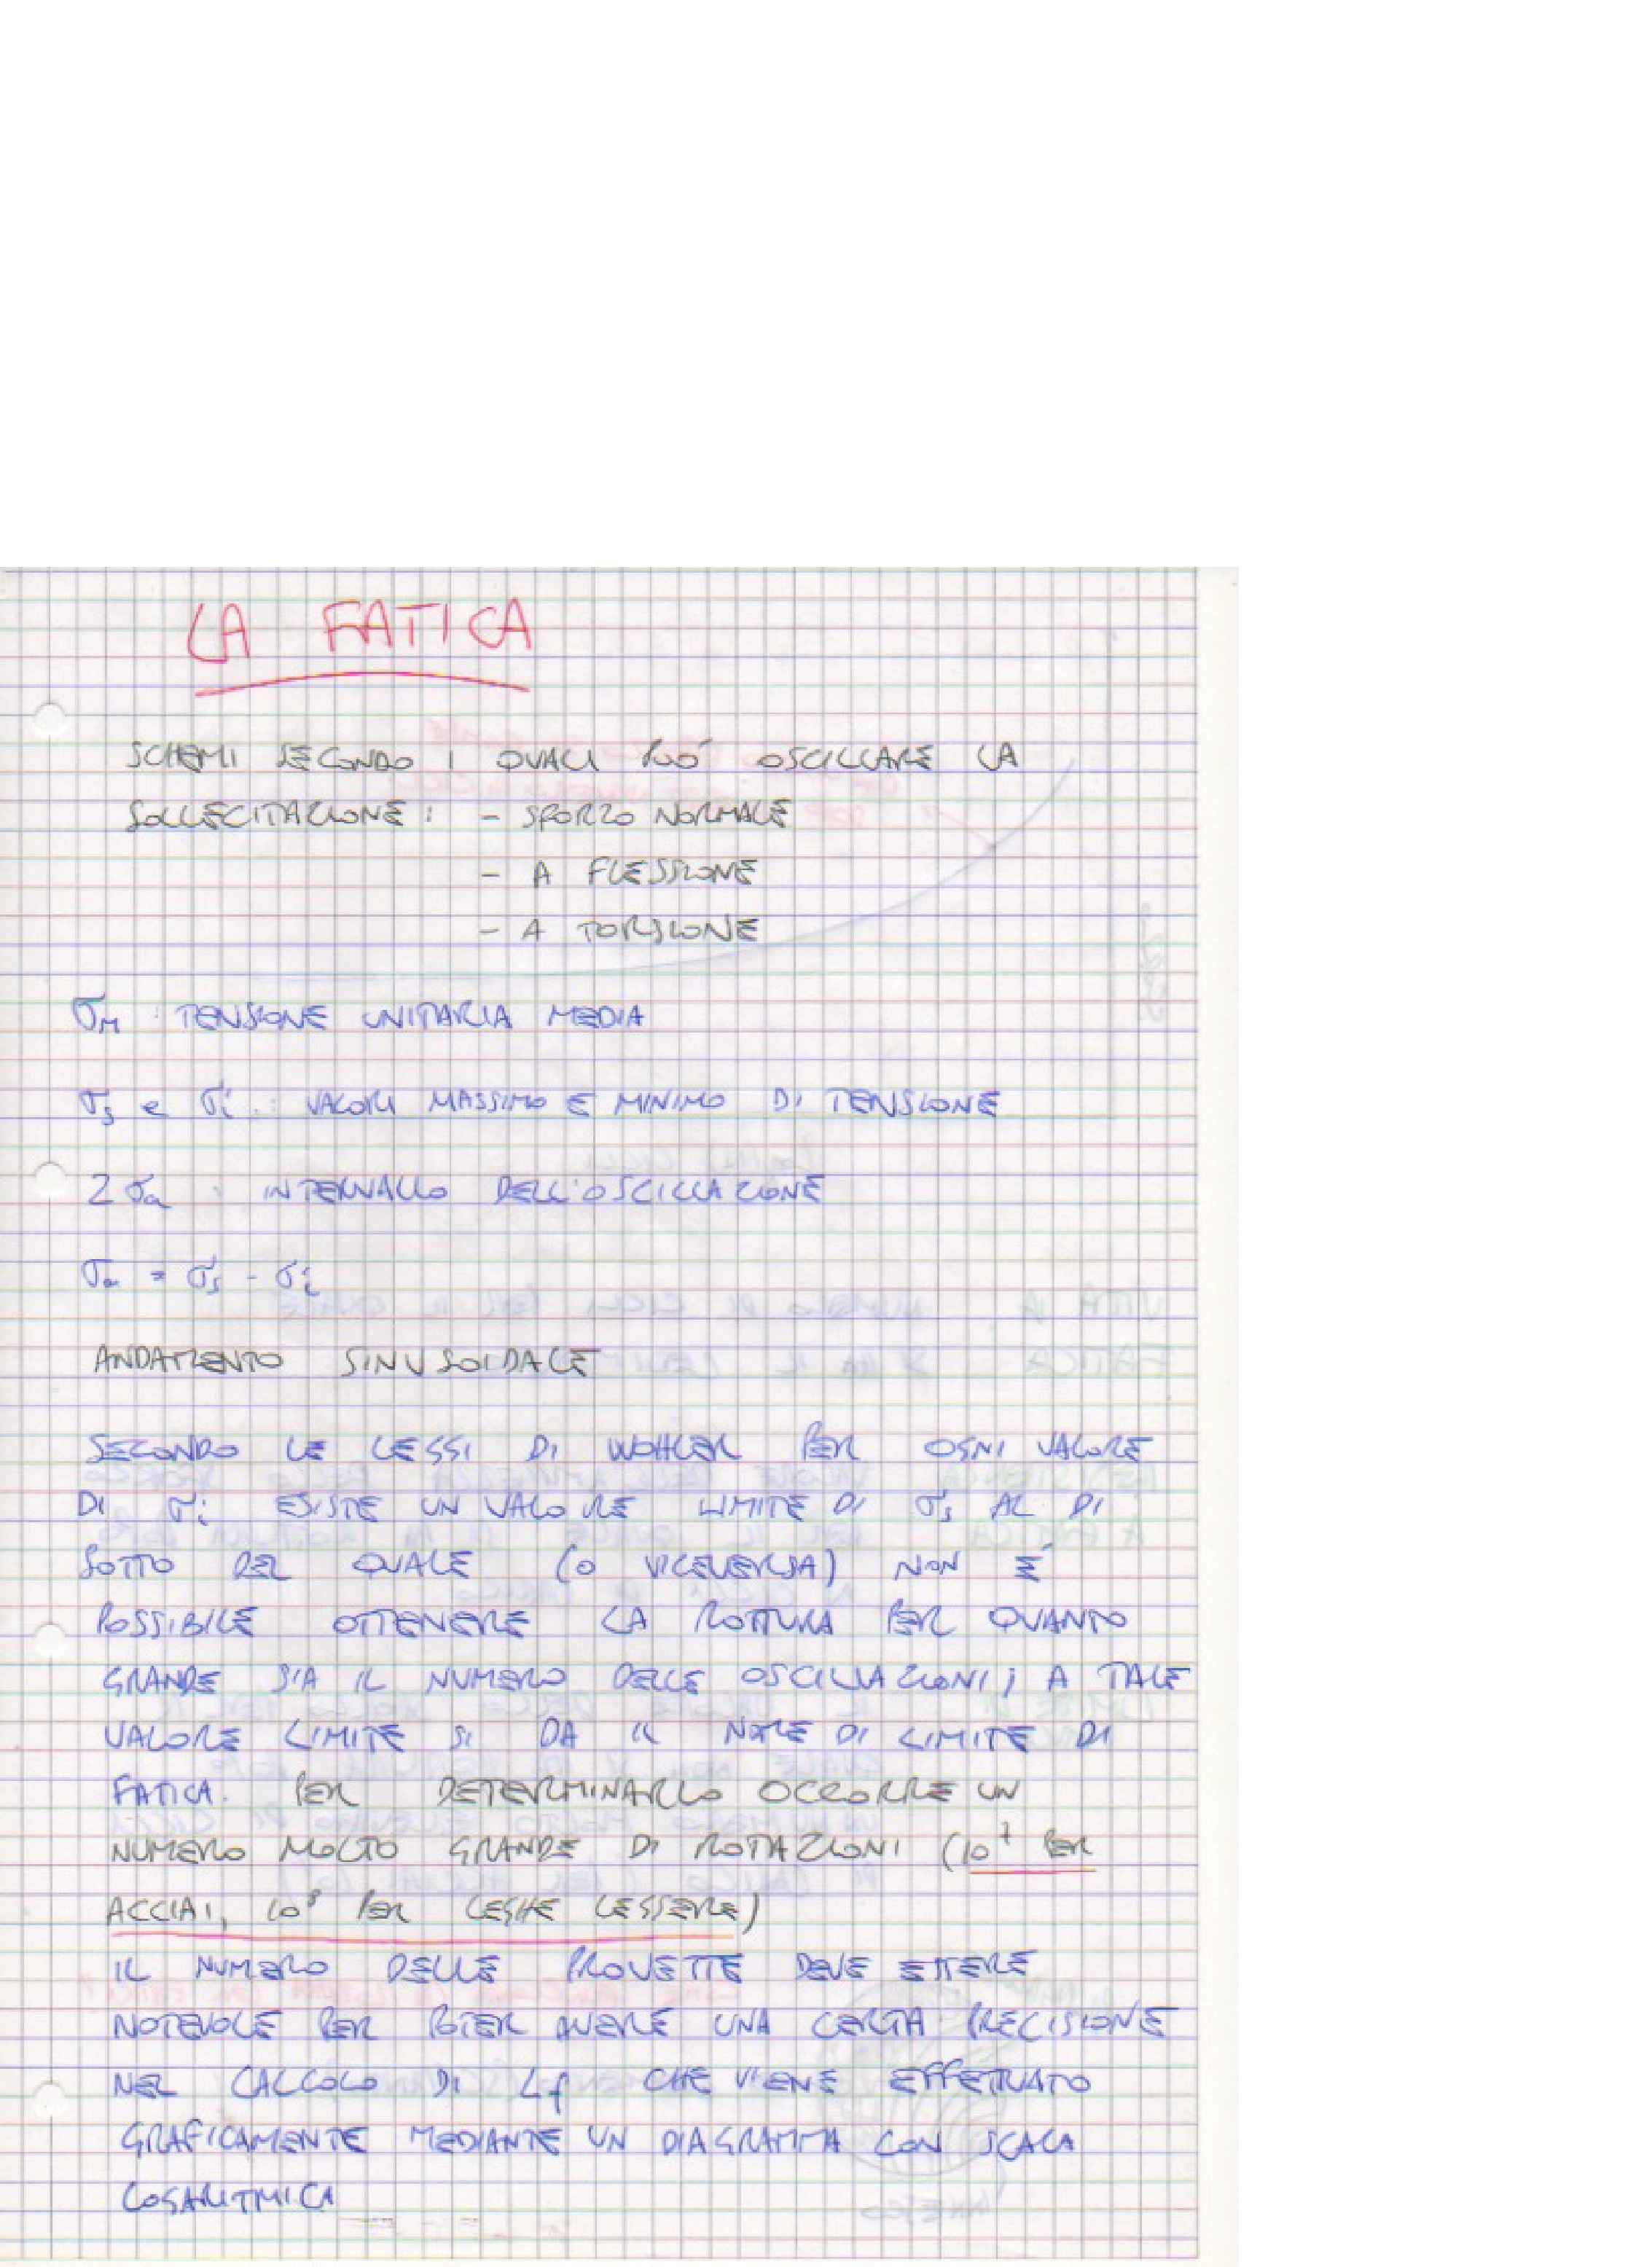 LA FATICA
SCHEMI SECONDO I QUALI PUÓ OSCILLARE LA
SOLLECITAZIONE: - SFORZO NORMALE
- A FLESSIONE
- A TORSIONE
σM : TENSIONE UNITARIA MEDIA
σs e σi : VALORI MASSIMO E MINIMO DI TENSIONE
2σa : INTERVALLO DELL'OSCILLAZIONE
σa = σs - σi
ANDAMENTO SINUSOIDALE
SECONDO LE LEGGI DI WOHLER PER OGNI VALORE
DI σi ESISTE UN VALORE LIMITE DI σs AL DI
SOTTO DEL QUALE (O VICEVERSA) NON É
POSSIBILE OTTENERE LA ROTTURA PER QUANTO
GRANDE SIA IL NUMERO DELLE OSCILLAZIONI; A TALE
VALORE LIMITE SI DA IL NOME DI LIMITE DI
FATICA. PER DETERMINARLO OCCORRE UN
NUMERO MOLTO GRANDE DI ROTAZIONI (10⁷ PER
ACCIAI, 10⁸ PER LEGHE LEGGERE)
IL NUMERO DELLE PROVETTE DEVE ESSERE
NOTEVOLE PER POTER AVERE UNA CERTA PRECISIONE
NEL CALCOLO DI Lf CHE VIENE EFFETTUATO
GRAFICAMENTE MEDIANTE UN DIAGRAMMA CON SCALA
LOGARITMICA